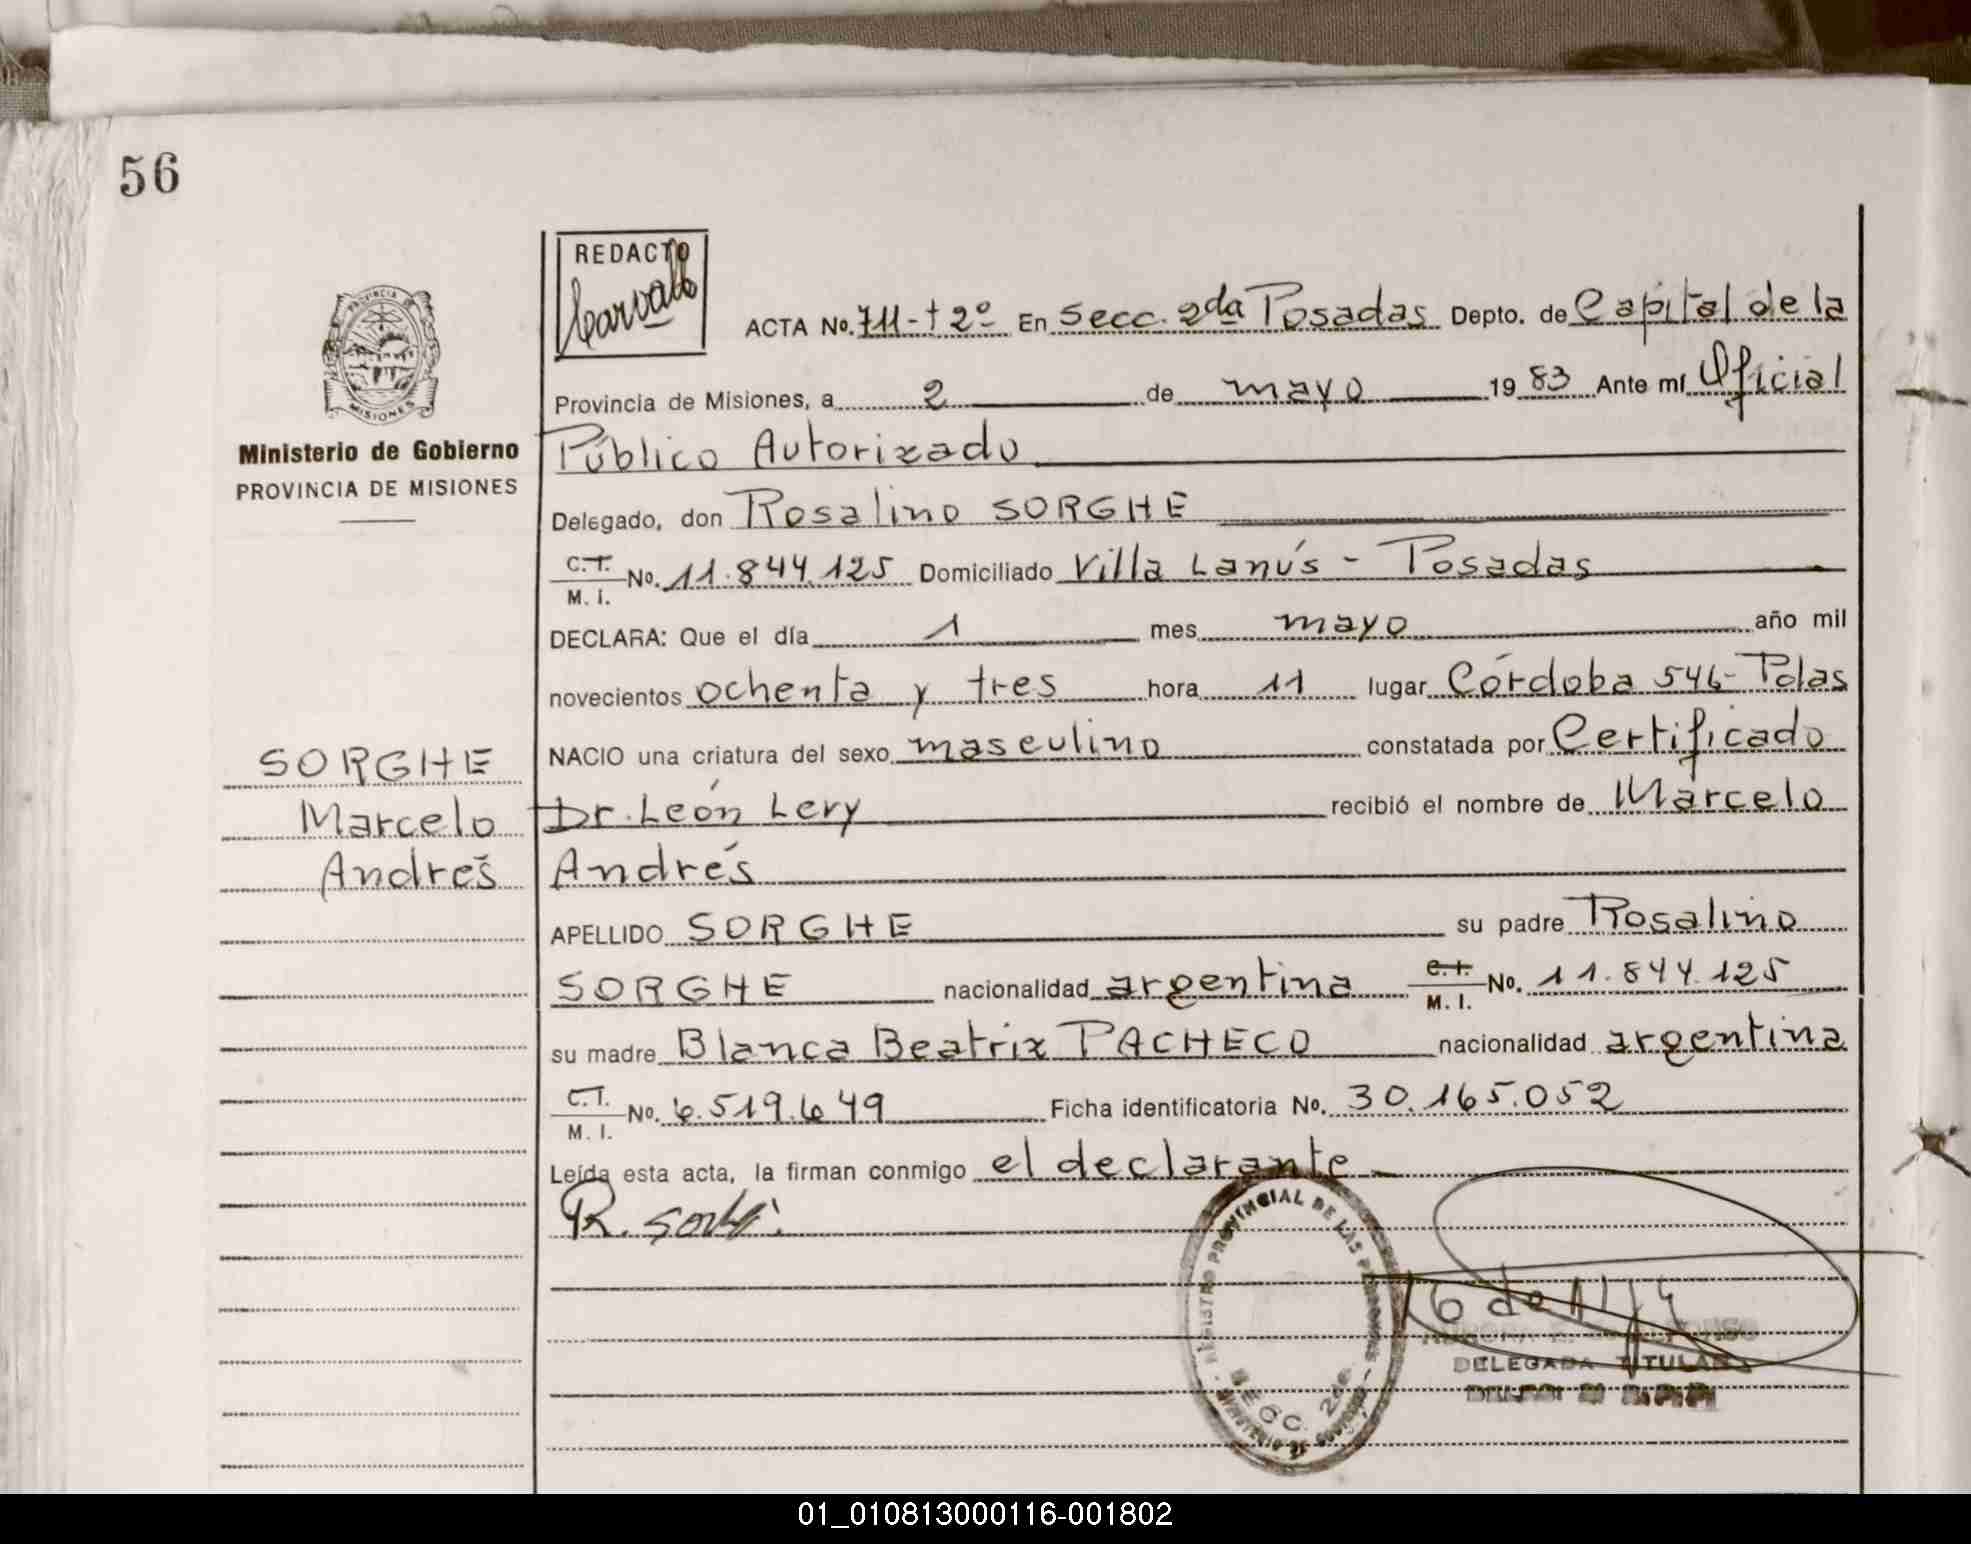 56
REDACTO
Carvallo
PROVINCIA DE
MISIONES
ACTA No. 711-t 2º En Secc. 2da Posadas Depto. de Capital de la
Provincia de Misiones, a 2 de mayo 1983 Ante mí Oficial
Ministerio de Gobierno
PROVINCIA DE MISIONES
Público Autorizado
Delegado, don Rosalino SORGHE
C.I. M. I. No. 11.844.125 Domiciliado Villa Lanús - Posadas
DECLARA: Que el día 1 mes mayo año mil
novecientos ochenta y tres hora 11 lugar Córdoba 546- Pdas
NACIO una criatura del sexo masculino constatada por Certificado
SORGHE
Marcelo
Andrés
Dr. León Levy recibió el nombre de Marcelo
Andrés
APELLIDO SORGHE su padre Rosalino
SORGHE nacionalidad argentina C.I. M. I. No. 11.844.125
su madre Blanca Beatrix PACHECO nacionalidad argentina
C.I. M. I. No. 6.519.649 Ficha identificatoria No. 30.165.052
Leída esta acta, la firman conmigo el declarante
REGISTRO PROVINCIAL DE LAS PERSONAS
SECC. 2da.
DELEGADA TITULAR
01_010813000116-001802